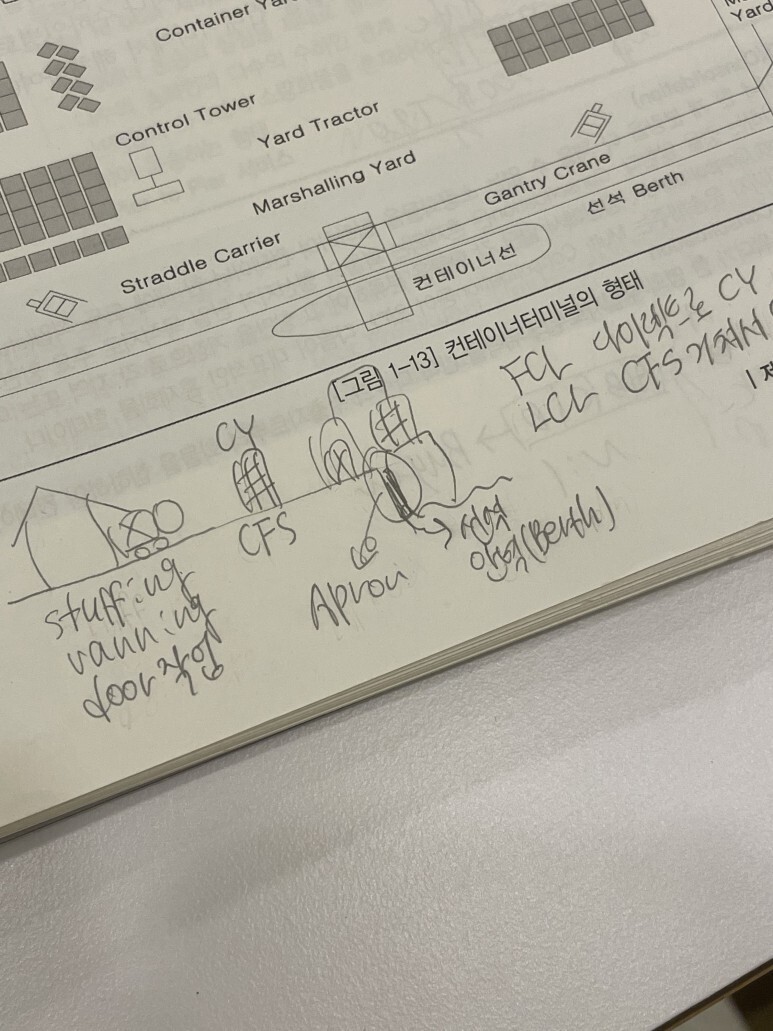 Container Yar
Yard
Control Tower
Yard Tractor
Marshalling Yard
Gantry Crane
선석 Berth
Straddle Carrier
컨테이너선
[그림 1-13] 컨테이너터미널의 형태
FCL 다이렉트로 CY
LCL CFS 거쳐서
CY
CFS
stuffing
vanning
door 작업
Apron
선석
안벽(Berth)